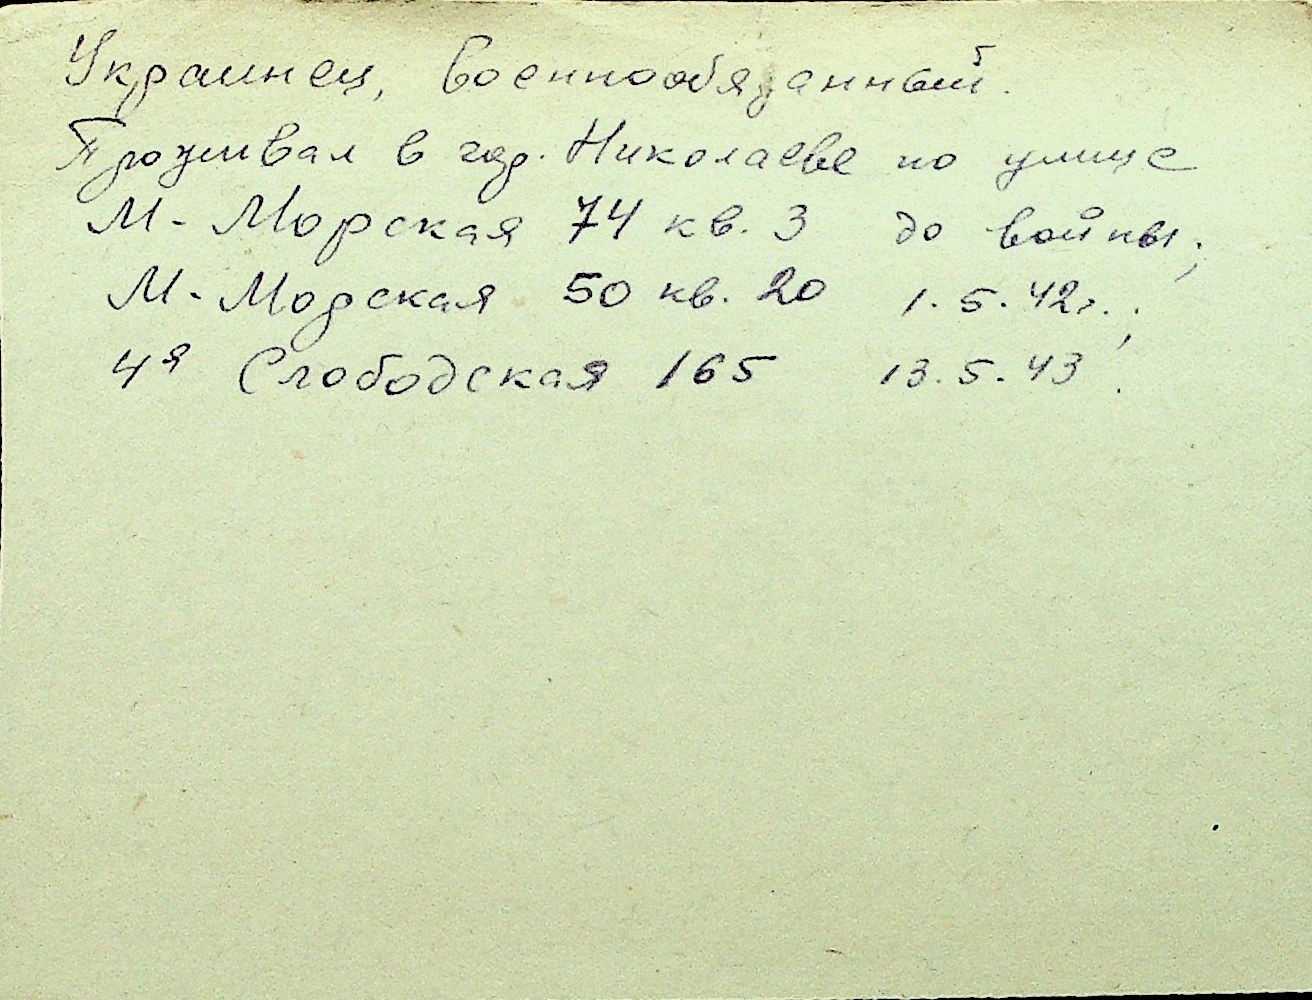 Украинец, военнообязанный.
Проживал в гор. Николаеве по улице
М-Морская 74 кв. 3 до войны;
М-Морская 50 кв. 20 1.5.42г.;
4я Слободская 165 13.5.43.